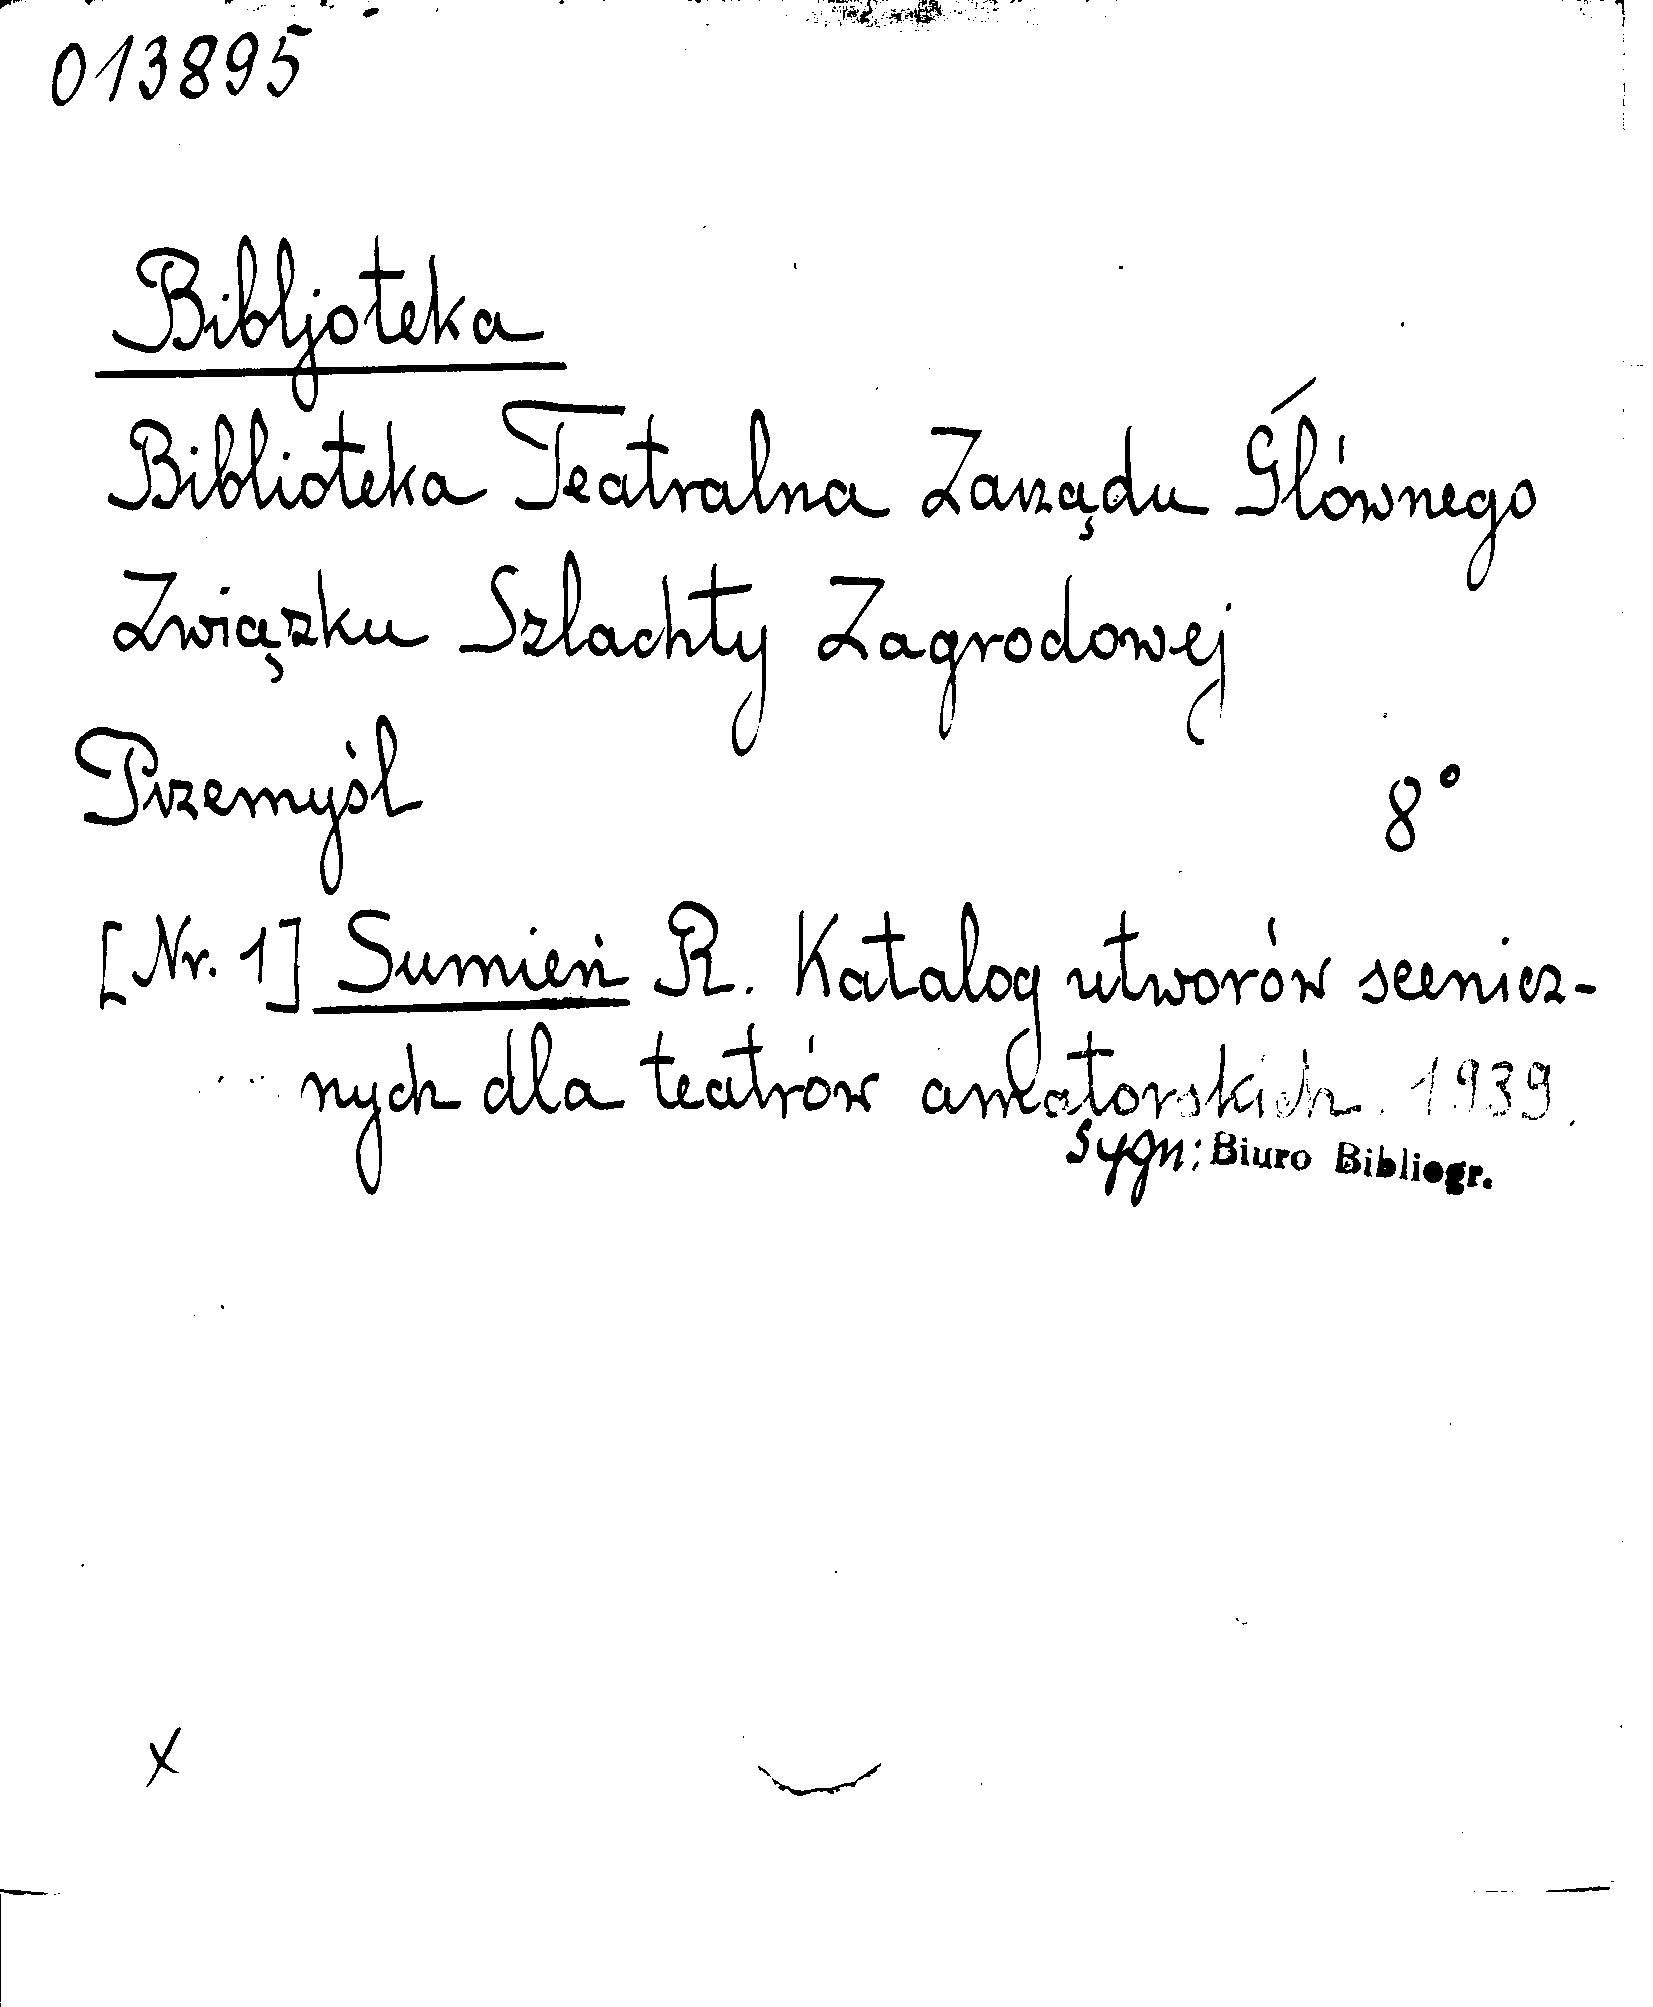 013895
Bibljoteka
Biblioteka Teatralna Zarządu Głównego
Związku Szlachty Zagrodowej
Przemyśl 8°
[Nr. 1] Sumień R. Katalog utworów scenicz-
nych dla teatrów amatorskich. 1939.
Sygn: Biuro Bibliogr.
x